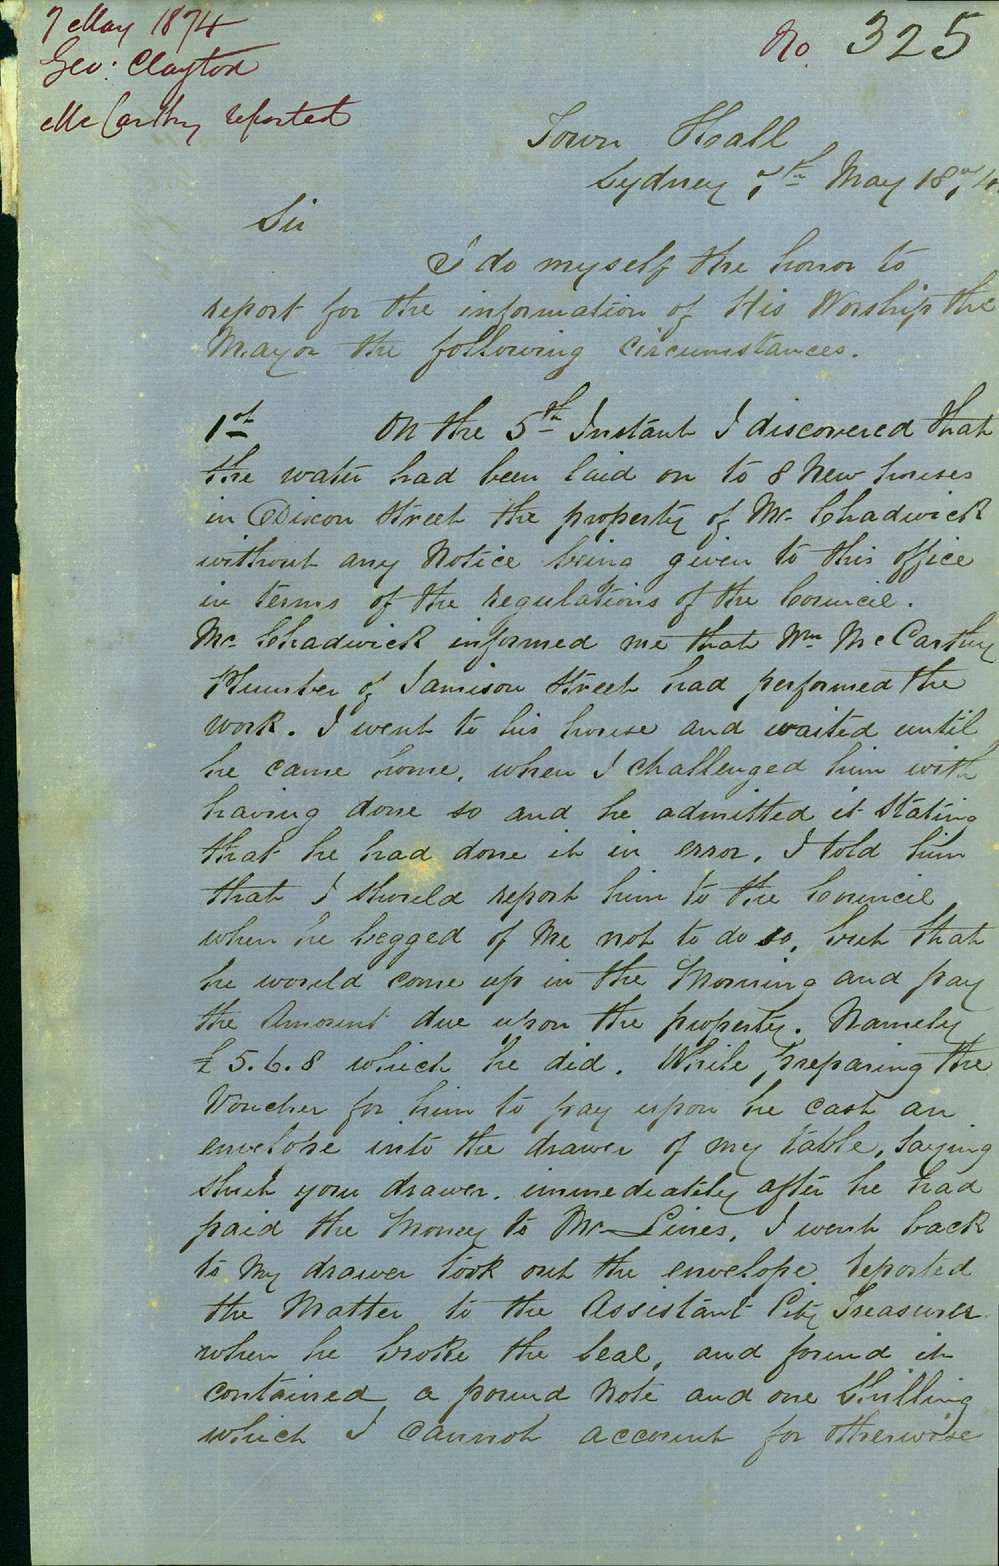 7 May 1874
Geo: Clayton
McCarthy reported
No. 325
Town Hall
Sydney 7th May 1874
Sir
I do myself the honor to
report for the information of His Worship the
Mayor the following circumstances.
1st On the 5th Instant I discovered that
the water had been laid on to 8 New houses
in Dixon Street the property of Mr. Chadwick
without any Notice being given to this office
in terms of the regulations of the Council.
Mr. Chadwick informed me that Wm McCarthy
Plumber of Jamison Street had performed the
work. I went to his house and waited until
he came home, when I challenged him with
having done so and he admitted it Stating
that he had done it in error. I told him
that I should report him to the Council
when he begged of Me not to do so, but that
he would come up in the Morning and pay
the Amount due upon the property. Namely
£5.6.8 which he did. While preparing the
Voucher for him to pay upon he cast an
envelope into the drawer of my table, Saying
Shut your drawer. immediately after he had
paid the Money to Mr Lines, I went back
to My drawer took out the envelope reported
the Matter to the Assistant City Treasurer
when he broke the Seal, and found it
contained a pound Note and one Shilling
which I cannot account for otherwise